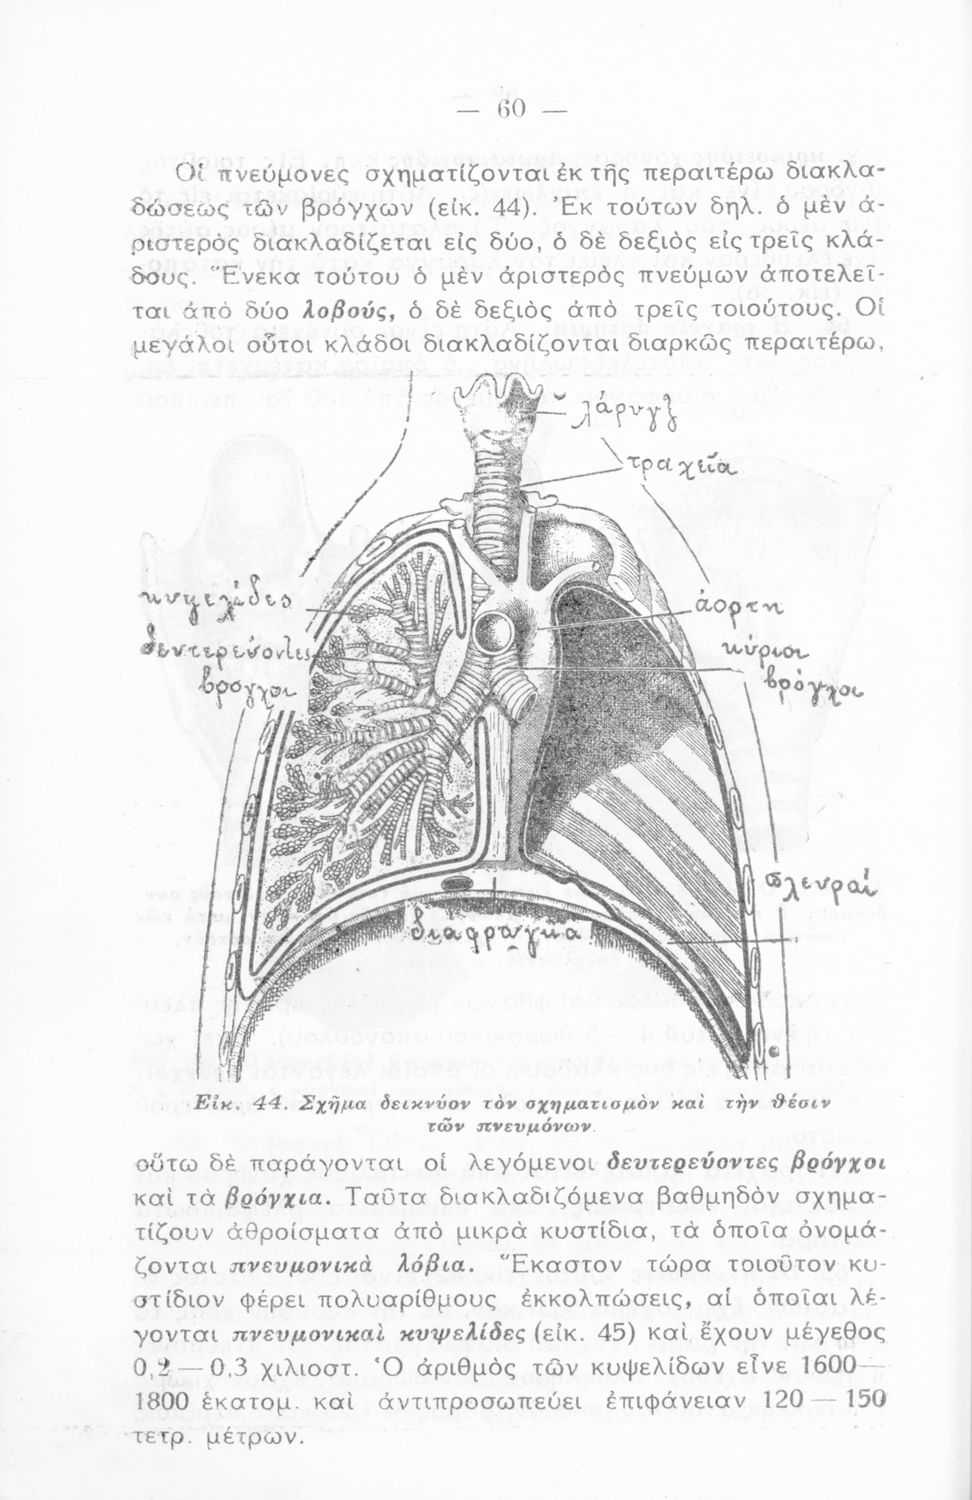 — 60 —
Οἱ πνεύμονες σχηματίζονται ἐκ τῆς περαιτέρω διακλα-
δώσεως τῶν βρόγχων (εἰκ. 44). Ἐκ τούτων δηλ. ὁ μὲν ἀ-
ριστερὸς διακλαδίζεται εἰς δύο, ὁ δὲ δεξιὸς εἰς τρεῖς κλά-
δους. Ἕνεκα τούτου ὁ μὲν ἀριστερὸς πνεύμων ἀποτελεῖ-
ται ἀπὸ δύο λοβούς, ὁ δὲ δεξιὸς ἀπὸ τρεῖς τοιούτους. Οἱ
μεγάλοι οὗτοι κλάδοι διακλαδίζονται διαρκῶς περαιτέρω,
λάρυγξ
τραχεῖα
κυψελίδες
ἀορτη
δευτερεύοντες
βρόγχοι
κύριοι
βρόγχοι
πλευραί
διάφραγμα
Εἰκ. 44. Σχῆμα δεικνύον τὸν σχηματισμὸν καὶ τὴν θέσιν
τῶν πνευμόνων.
οὕτω δὲ παράγονται οἱ λεγόμενοι δευτερεύοντες βρόγχοι
καὶ τὰ βρόνχια. Ταῦτα διακλαδιζόμενα βαθμηδὸν σχημα-
τίζουν ἀθροίσματα ἀπὸ μικρὰ κυστίδια, τὰ ὁποῖα ὀνομά-
ζονται πνευμονικὰ λόβια. Ἕκαστον τώρα τοιοῦτον κυ-
στίδιον φέρει πολυαρίθμους ἐκκολπώσεις, αἱ ὁποῖαι λέ-
γονται πνευμονικαὶ κυψελίδες (εἰκ. 45) καὶ ἔχουν μέγεθος
0,2 — 0,3 χιλιοστ. Ὁ ἀριθμὸς τῶν κυψελίδων εἶνε 1600—
1800 ἑκατομ. καὶ ἀντιπροσωπεύει ἐπιφάνειαν 120 — 150
τετρ. μέτρων.